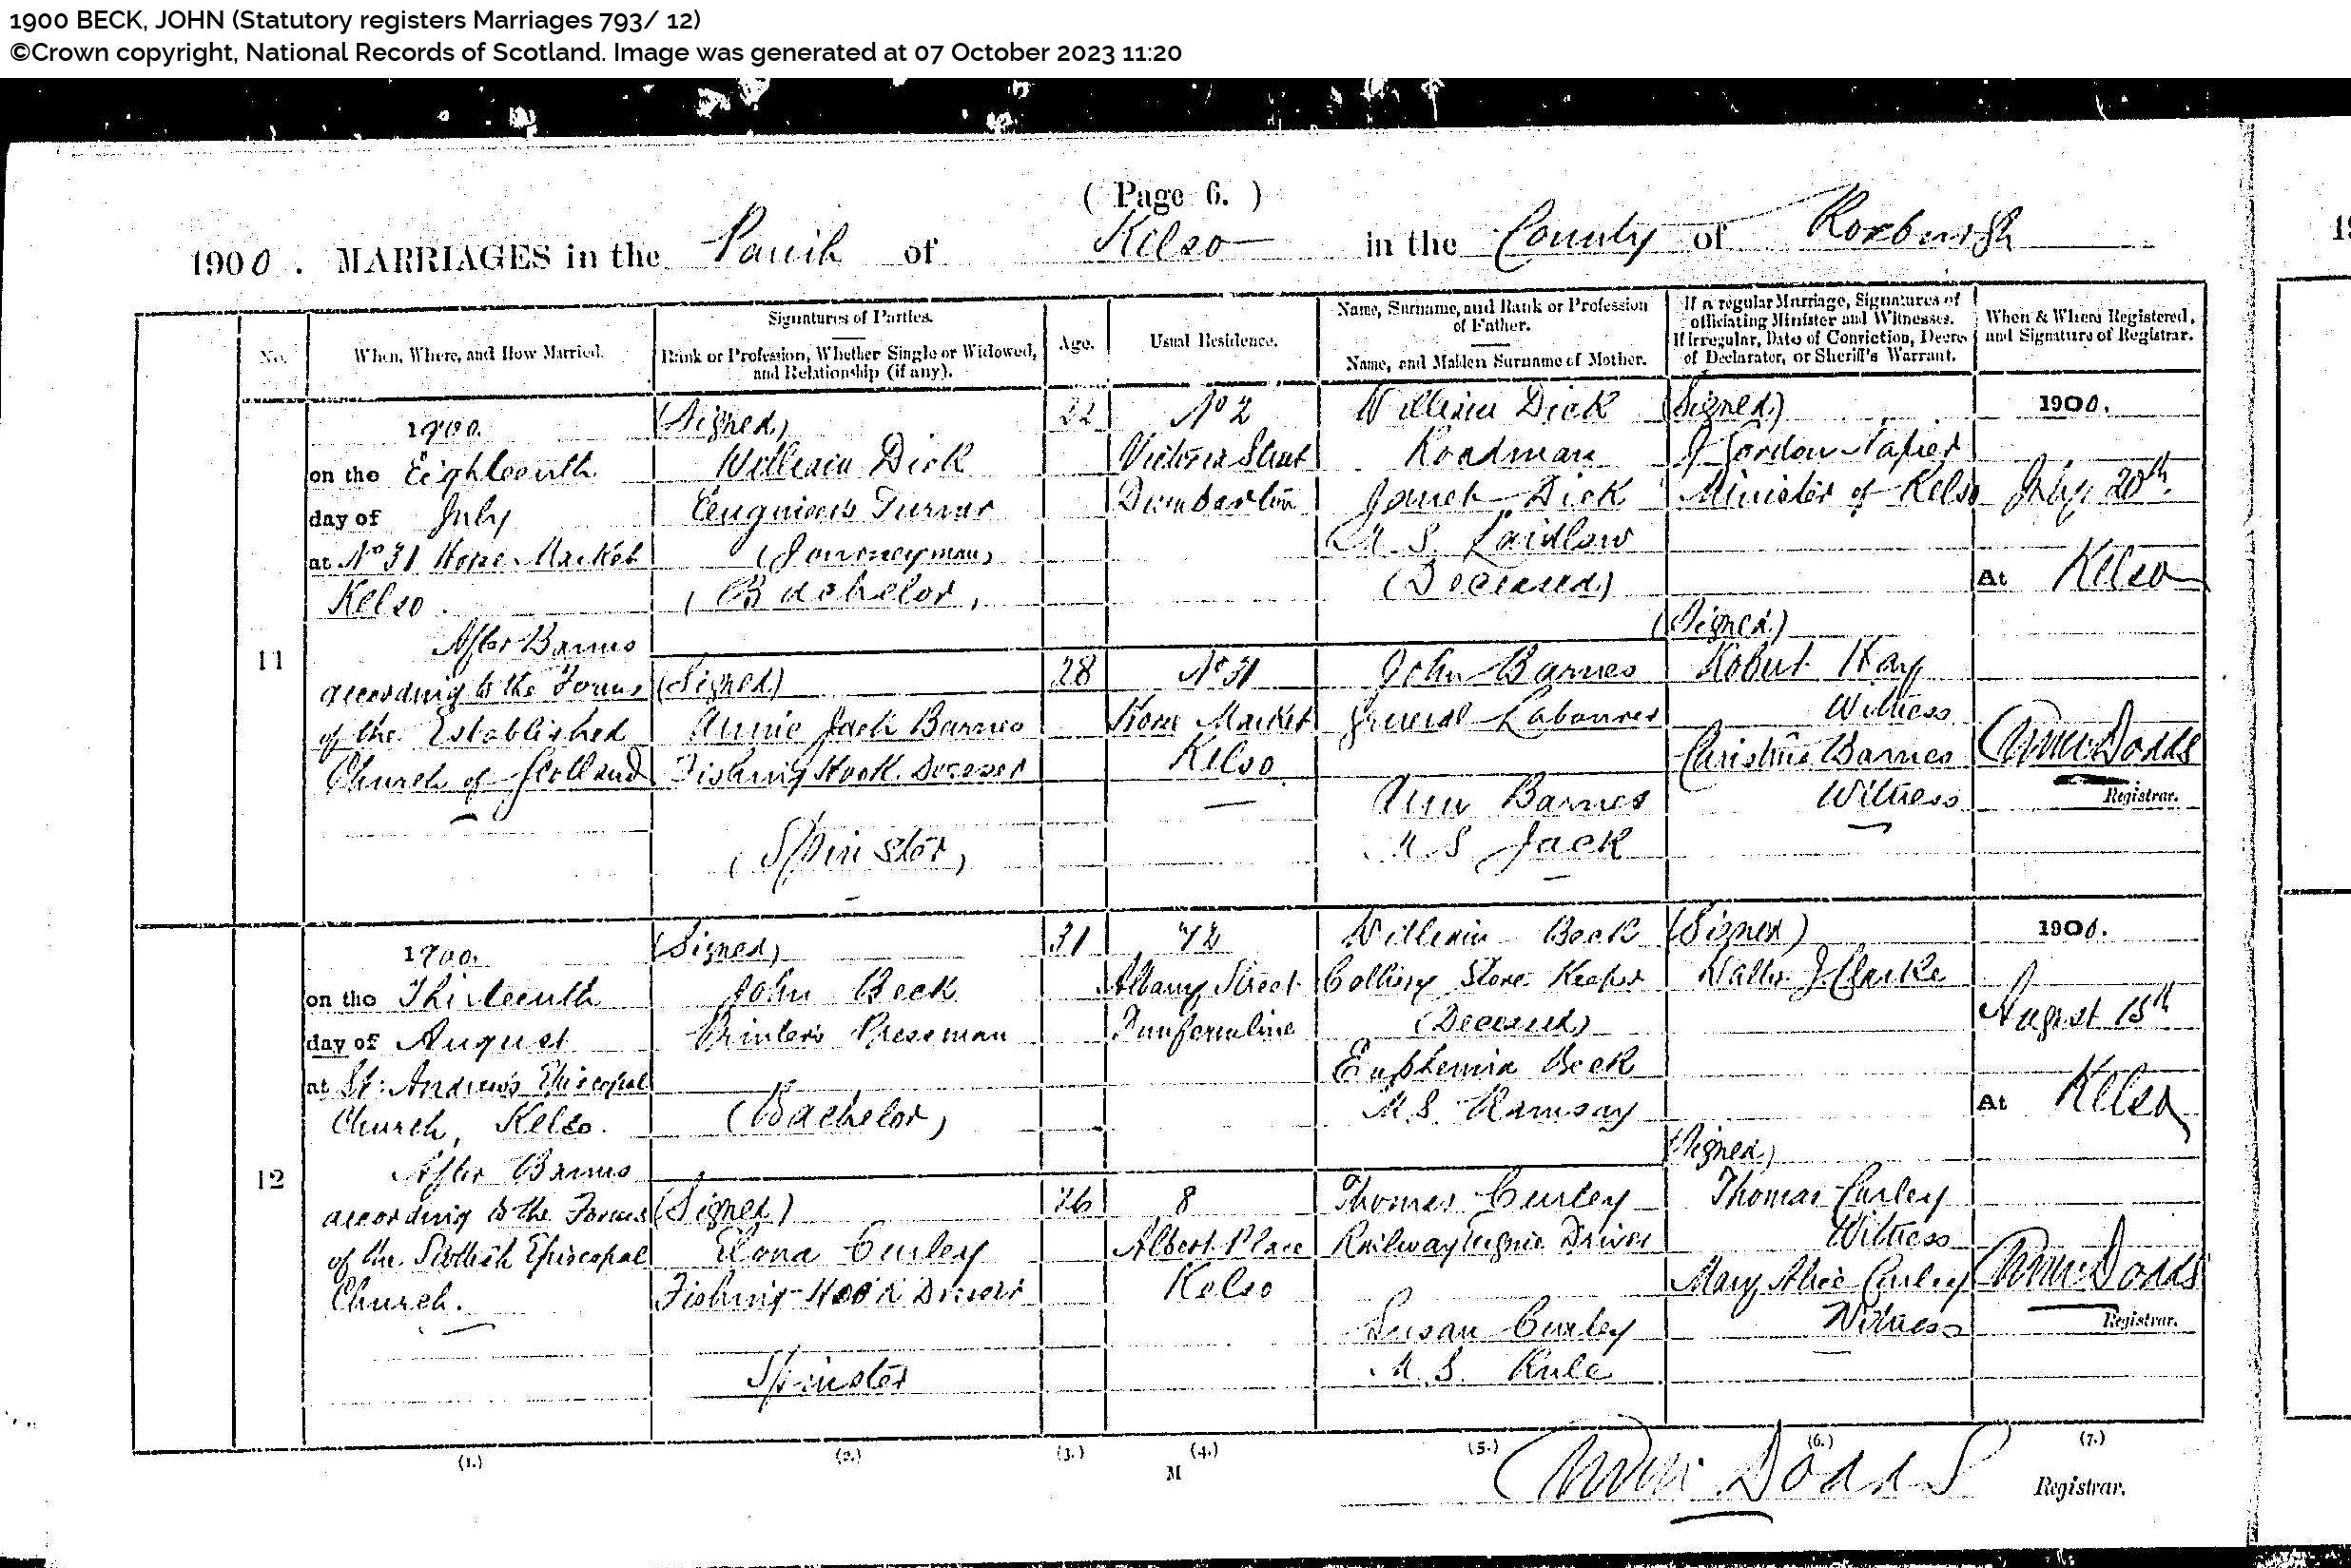 1900 BECK, JOHN (Statutory registers Marriages 793/ 12)
©Crown copyright, National Records of Scotland. Image was generated at 07 October 2023 11:20
( Page 6. )
1900. MARRIAGES in the Parish of Kelso in the County of Roxburgh
No.
When, Where, and How Married.
Signatures of Parties.
Rank or Profession, Whether Single or Widowed,
and Relationship (if any).
Age.
Usual Residence.
Name, Surname, and Rank or Profession
of Father.
Name, and Maiden Surname of Mother.
If a regular Marriage, Signatures of
officiating Minister and Witnesses.
If irregular, Date of Conviction, Decree
of Declarator, or Sheriff's Warrant.
When & Where Registered,
and Signature of Registrar.
11
1900.
on the Eighteenth
day of July
at No 31 Horse Market
Kelso.
After Banns
according to the Forms
of the Established
Church of Scotland
(Signed)
William Dick
Engineer's Turner
(Journeyman)
(Bachelor)
22
No 2
Victoria Street
Dumbarton
William Dick
Roadman
Janet Dick
M.S. Laidlaw
(Deceased)
(Signed)
J Gordon Napier
Minister of Kelso
1900.
July 20th
At Kelso
(Signed)
Annie Jack Barnes
Fishing Hook Dresser
(Spinster)
28
No 31
Horse Market
Kelso
John Barnes
General Labourer
Ann Barnes
M S Jack
(Signed)
Robert Hay
Witness
Christina Barnes
Witness
Dodds
Registrar.
12
1900.
on the Thirteenth
day of August
at St: Andrew's Episcopal
Church, Kelso.
After Banns
according to the Forms
of the Scottish Episcopal
Church.
(Signed)
John Beck
Printer's Pressman
(Bachelor)
31
72
Albany Street
Dunfermline
William Beck
Colliery Store Keeper
(Deceased)
Euphemia Beck
M.S. Ramsay
(Signed)
Walter J Clarke
1900.
August 15th
At Kelso
(Signed)
Curley
Fishing-Hook Dresser
Spinster
26
8
Albert Place
Kelso
Thomas Curley
Railway Engine Driver
Susan Curley
M.S. Rule
(Signed)
Thomas Curley
Witness
Mary Alice Curley
Witness
Dodds
Registrar.
(1.) (2.) (3.) (4.) (5.) (6.) (7.)
M
Dodds
Registrar.
19